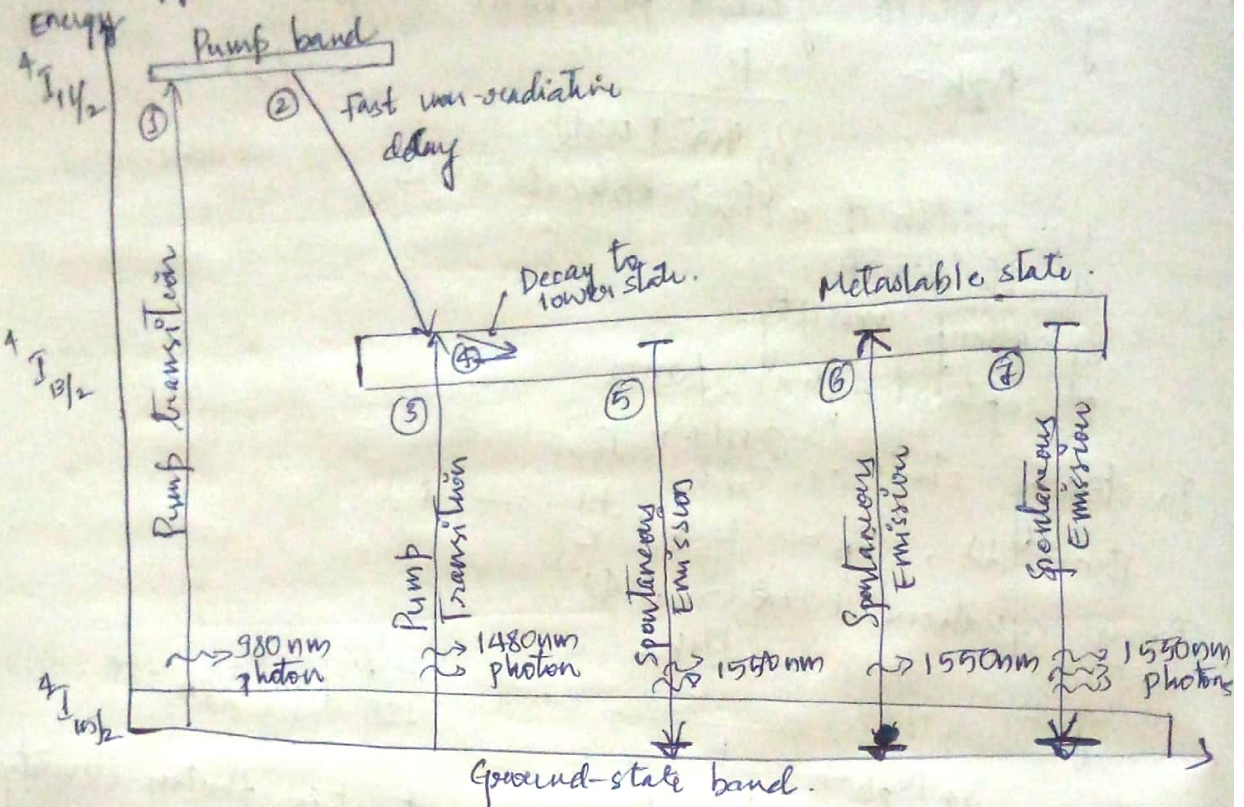 Energy
Pump band
4
I 11/2
①
②
Fast non-radiative
decay
Pump transition
Decay to
lower state.
Metastable state.
4
I 13/2
④
③
⑤
⑥
⑦
Pump
Transition
Spontaneous
Emission
Spontaneous
Emission
Spontaneous
Emission
980nm
photon
1480nm
photon
1550nm
1550nm
1550nm
photons
4
I 15/2
Ground-state band.